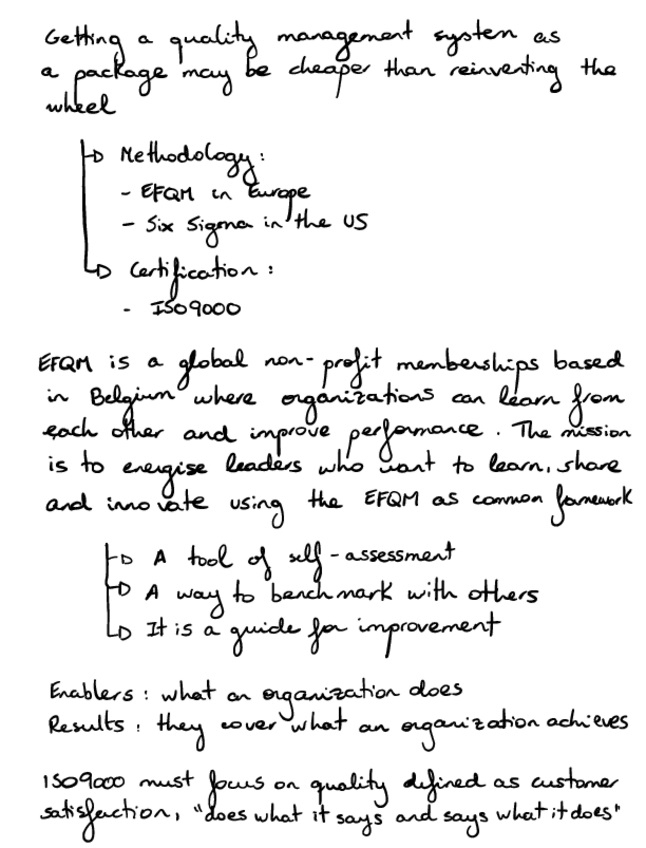 Getting a quality management system as
a package may be cheaper than reinventing the
wheel
Methodology:
- EFQM in Europe
- Six Sigma in the US
Certification:
- ISO9000
EFQM is a global non-profit memberships based
in Belgium where organizations can learn from
each other and improve performance. The mission
is to energise leaders who want to learn, share
and innovate using the EFQM as common framework
A tool of self-assessment
A way to benchmark with others
It is a guide for improvement
Enablers: what an organization does
Results: they cover what an organization achieves
ISO9000 must focus on quality defined as customer
satisfaction, "does what it says and says what it does"